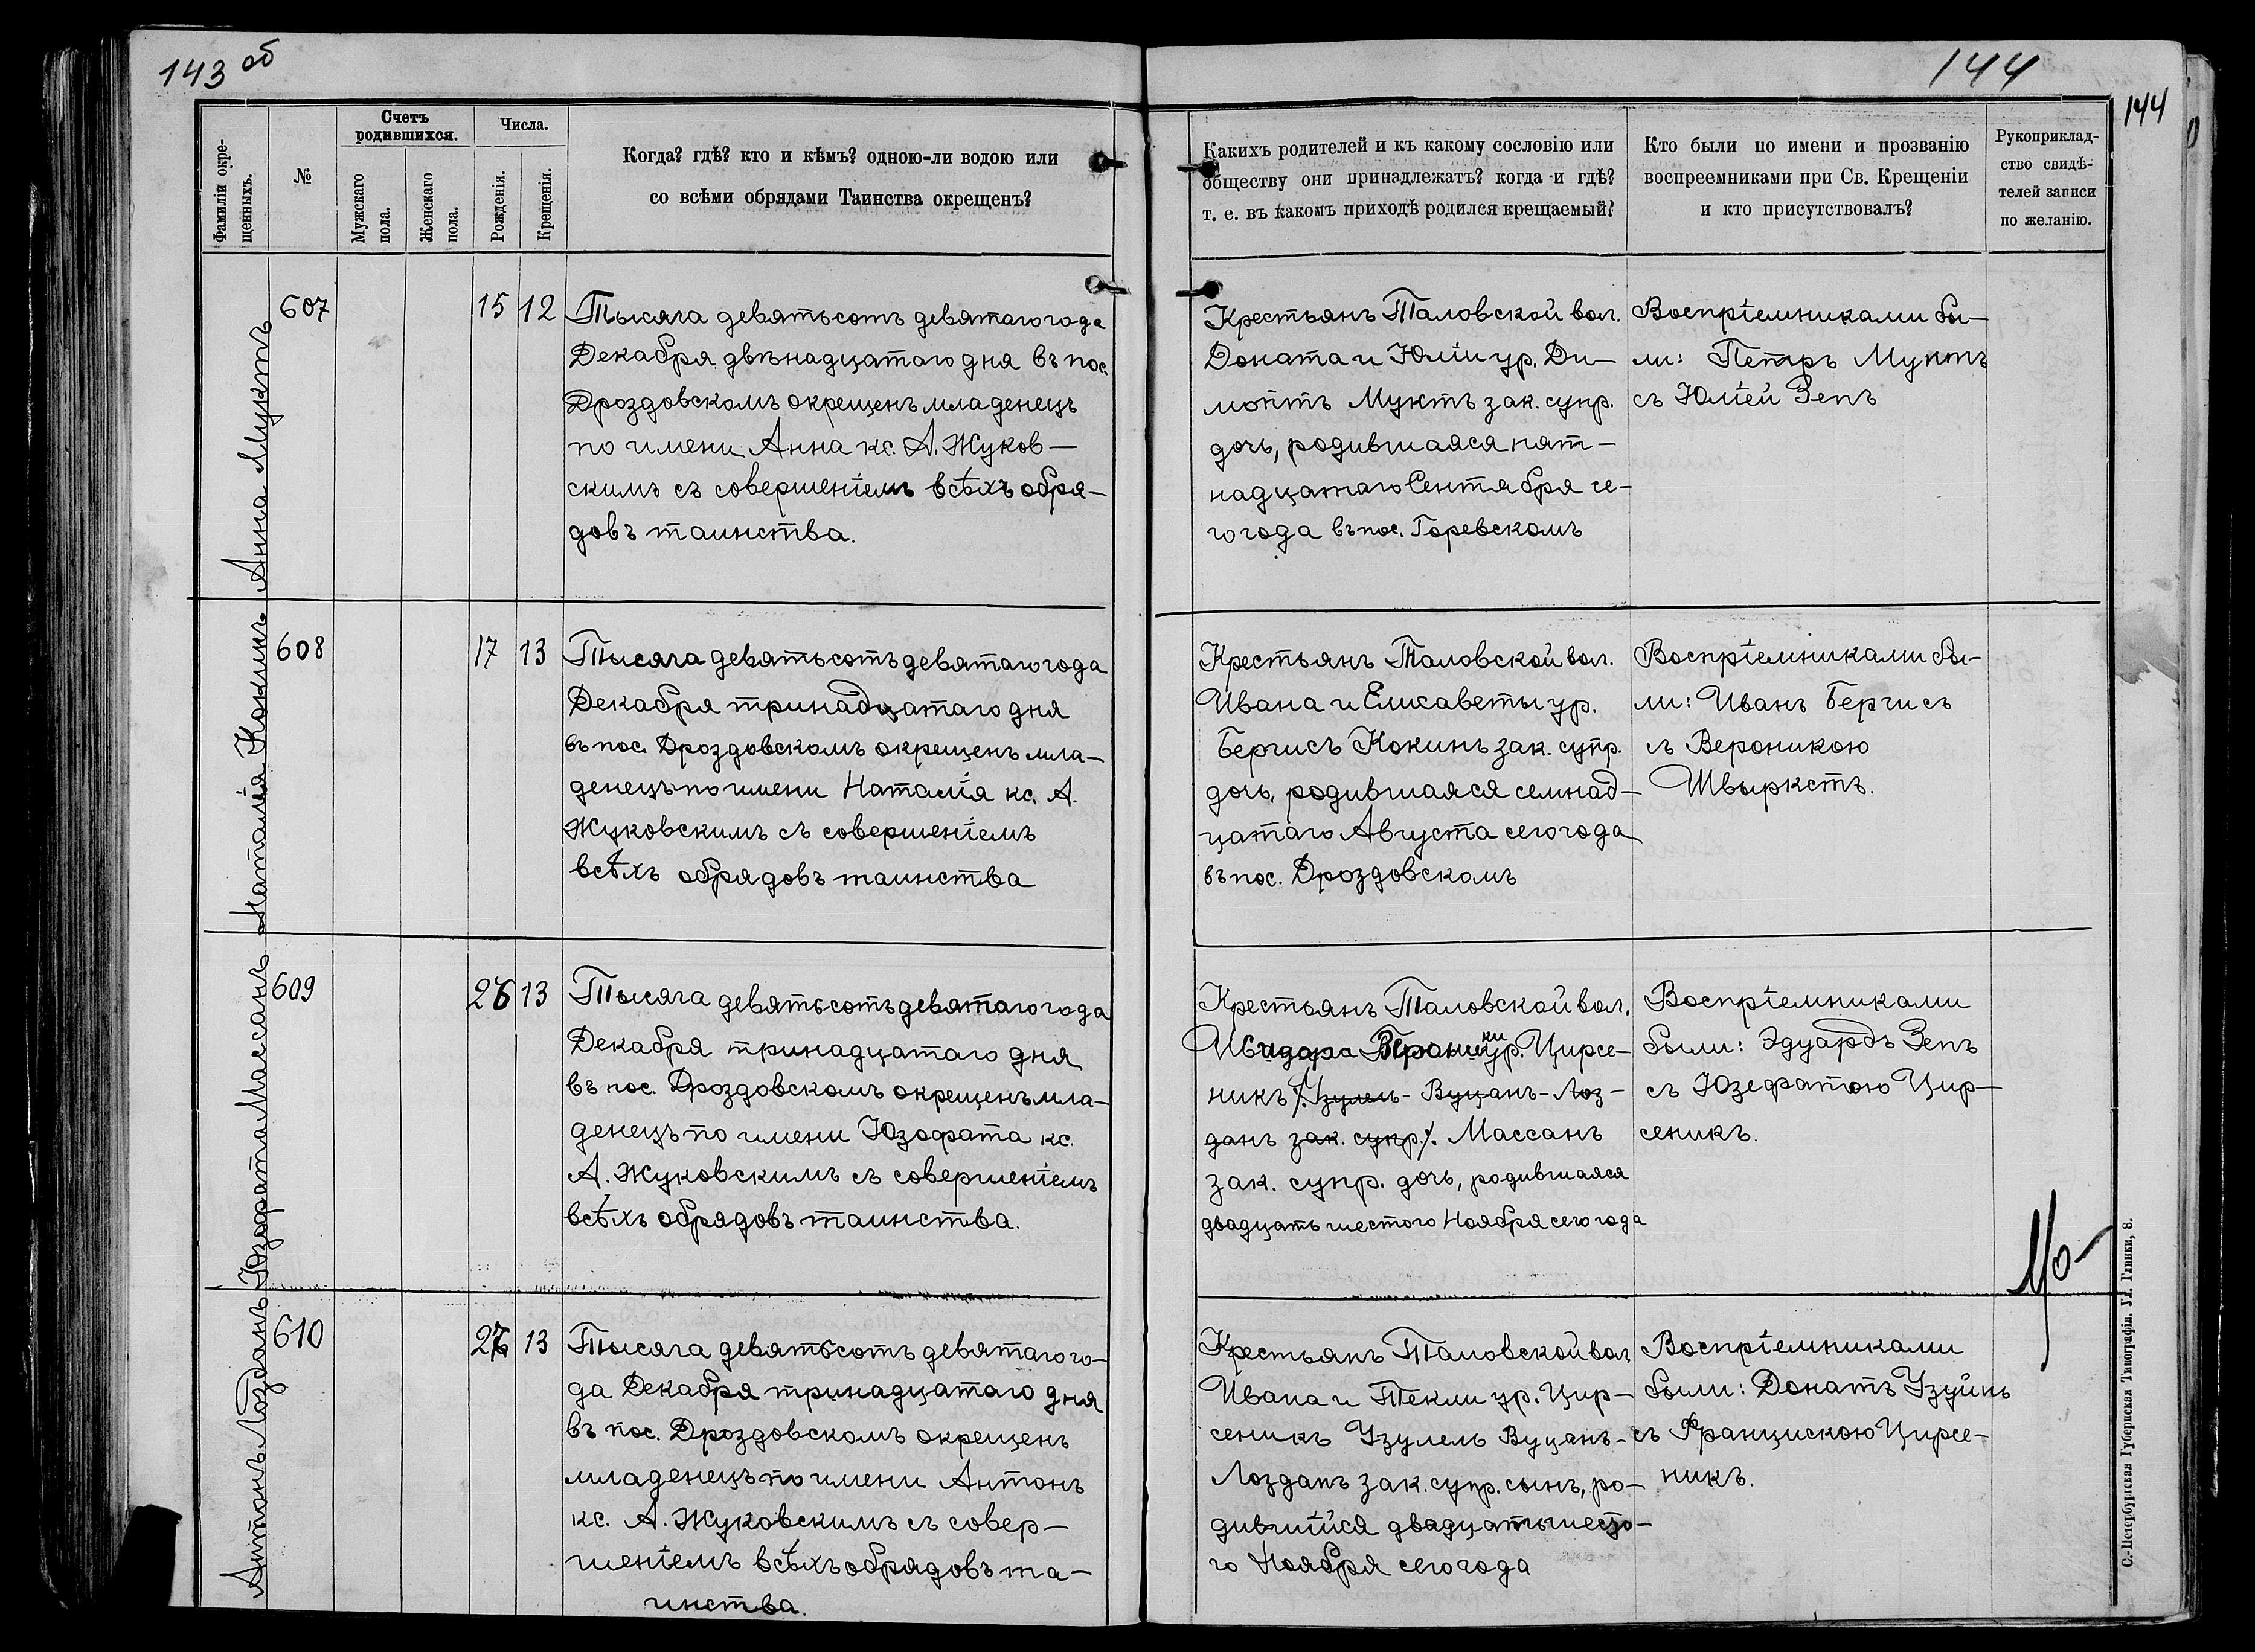 143 об
144
144
Фамиліи окре-
щенныхъ.
№
Счетъ
родившихся.
Мужскаго
пола.
Женскаго
пола.
Числа.
Рожденія.
Крещенія.
Когда? гдѣ? кто и кѣмъ? одною-ли водою или
со всѣми обрядами Таинства окрещенъ?
Какихъ родителей и къ какому сословію или
обществу они принадлежатъ? когда и гдѣ?
т. е. въ какомъ приходѣ родился крещаемый?
Кто были по имени и прозванію
воспреемниками при Св. Крещеніи
и кто присутствовалъ?
Рукоприклад-
ство свидѣ-
телей записи
по желанію.
Анна Муктъ
607
15 12
Тысяча девятьсотъ девятаго года
Декабря двѣнадцатаго дня въ пос.
Дроздовскомъ окрещенъ младенецъ
по имени Анна кс. А. Жуков-
скимъ съ совершеніемъ всѣхъ обря-
довъ таинства.
Крестьянъ Таловской вол.
Доната и Юліи ур. Ди-
мойтъ Муктъ зак. супр.
дочь, родившаяся пят-
надцатаго Сентября се-
го года въ пос. Горевскомъ
Воспріемниками бы-
ли: Петръ Муктъ
съ Юліей Зепъ
Наталія Кокинъ
608
17 13
Тысяча девятьсотъ девятаго года
Декабря тринадцатаго дня
въ пос. Дроздовскомъ окрещенъ мла-
денецъ по имени Наталія кс. А.
Жуковскимъ съ совершеніемъ
всѣхъ обрядовъ таинства
Крестьянъ Таловской вол.
Ивана и Елисаветы ур.
Бергисъ Кокинъ зак. супр.
дочь, родившаяся семнад-
цатаго Августа сего года
въ пос. Дроздовскомъ
Воспріемниками бы-
ли: Иванъ Бергисъ
съ Вероникою
Швыркстъ.
Юзофата Массанъ
609
26 13
Тысяча девятьсотъ девятаго года
Декабря тринадцатаго дня
въ пос. Дроздовскомъ окрещенъ мла-
денецъ по имени Юзофата кс.
А. Жуковскимъ съ совершеніемъ
всѣхъ обрядовъ таинства.
Крестьянъ Таловской вол.
Исидора Вероники ур. Цирсе-
никъ /. Узулель - Вуцанъ - Лоз-
данъ зак. супр. /. Массанъ
зак. супр. дочь, родившаяся
двадцать шестого Ноября сего года
Воспріемниками
были: Эдуардъ Зепъ
съ Юзефатою Цир-
сеникъ.
Антонъ Лозданъ
610
26 13
Тысяча девятьсотъ девятаго го-
да Декабря тринадцатаго дня
въ пос. Дроздовскомъ окрещенъ
младенецъ по имени Антонъ
кс. А. Жуковскимъ съ совер-
шеніемъ всѣхъ обрядовъ та-
инства.
Крестьянъ Таловской вол
Ивана и Текли ур. Цир-
сеникъ Узулель Вуцанъ-
Лозданъ зак. супр. сынъ, ро-
дившійся двадцать шесто-
го Ноября сего года
Воспріемниками
были: Донатъ Узуинь
съ Францискою Цирсе-
никъ.
С.-Петербургская Губернская Типографія. Ул. Глинки, 8.